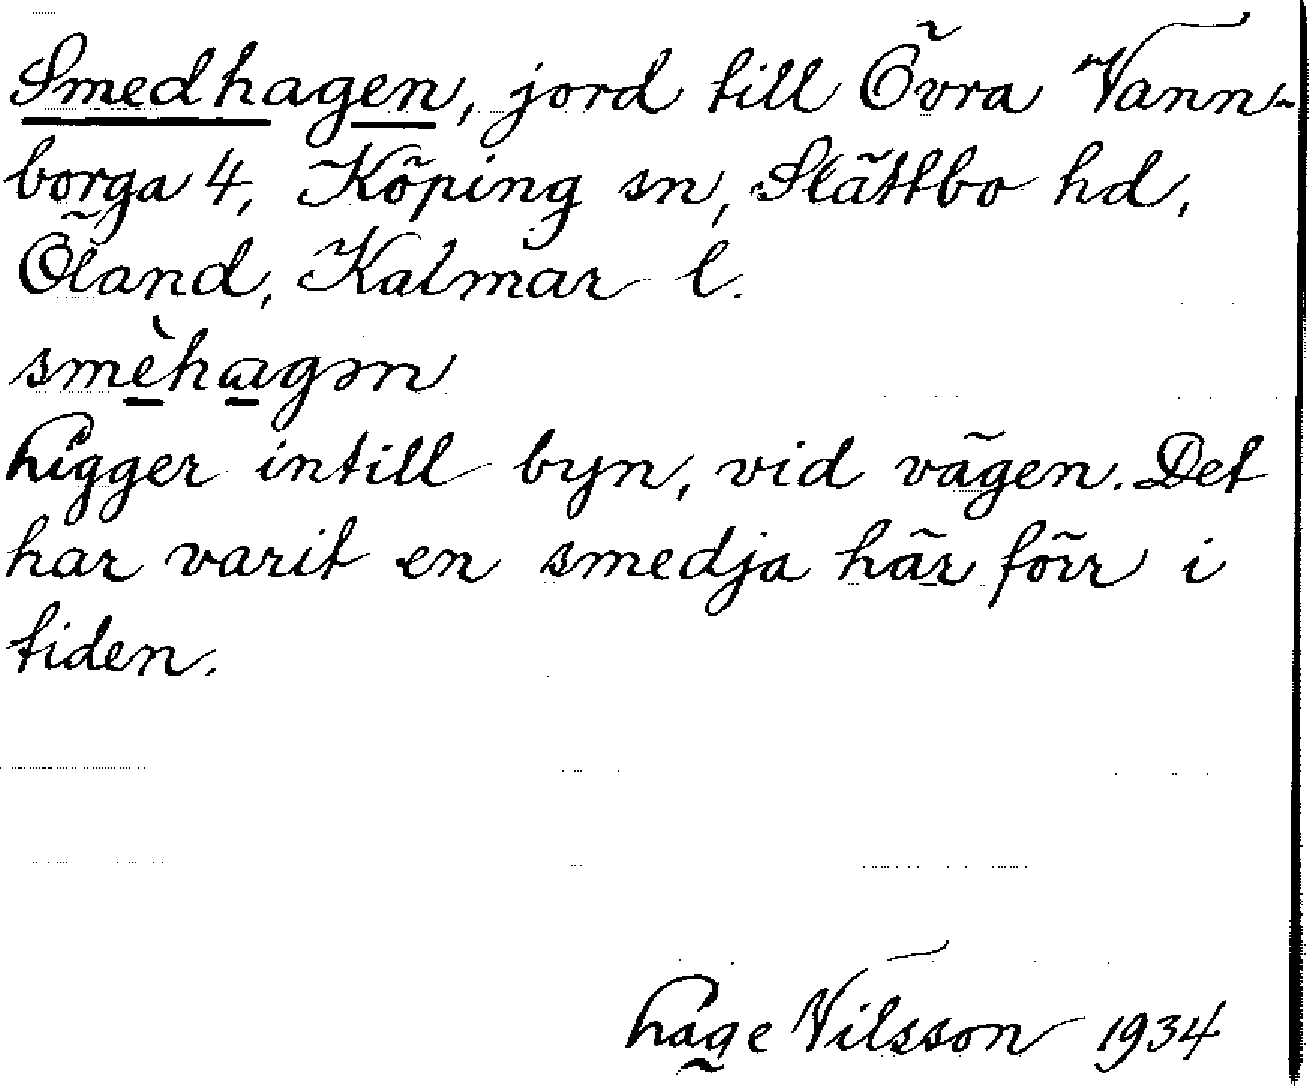 Smedhagen, jord till Övra Vann-
borga 4, Köping sn, Slättbo hd,
Öland, Kalmar l.
smèhagən
Ligger intill byn, vid vägen. Det
har varit en smedja här förr i
tiden.
Låge Nilsson 1934